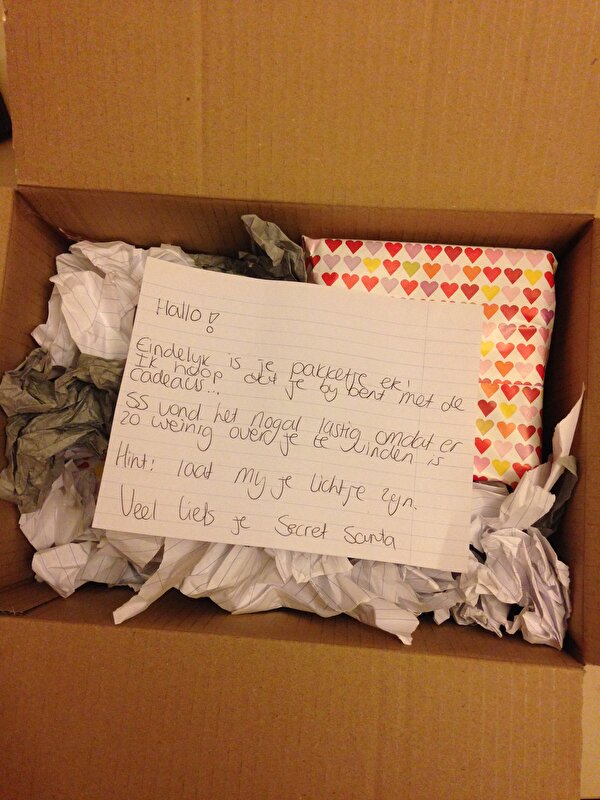 Hallo!
Eindelyk is je pakketje er!
Ik hoop dat je bly bent met de
cadeaus...
SS vond het nogal lastig omdat er
zo weinig over je te vinden is
Hint: laat my je lichtje zyn.
Veel liefs je Secret Santa